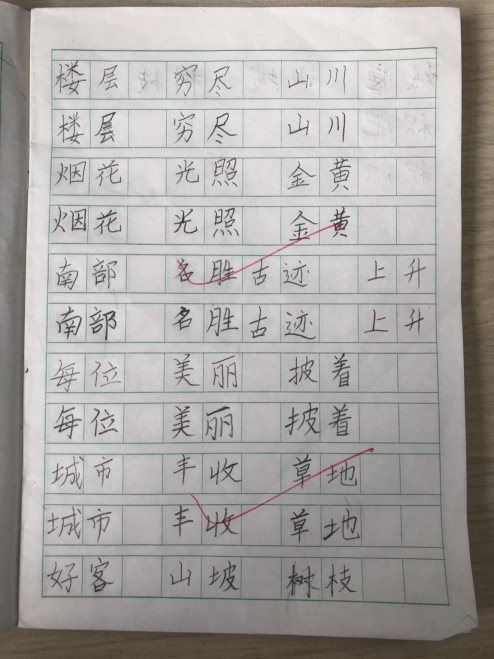 楼层 穷尽 山川
楼层 穷尽 山川
烟花 光照 金黄
烟花 光照 金黄
南部 名胜古迹 上升
南部 名胜古迹 上升
每位 美丽 披着
每位 美丽 披着
城市 丰收 草地
城市 丰收 草地
好客 山坡 树枝